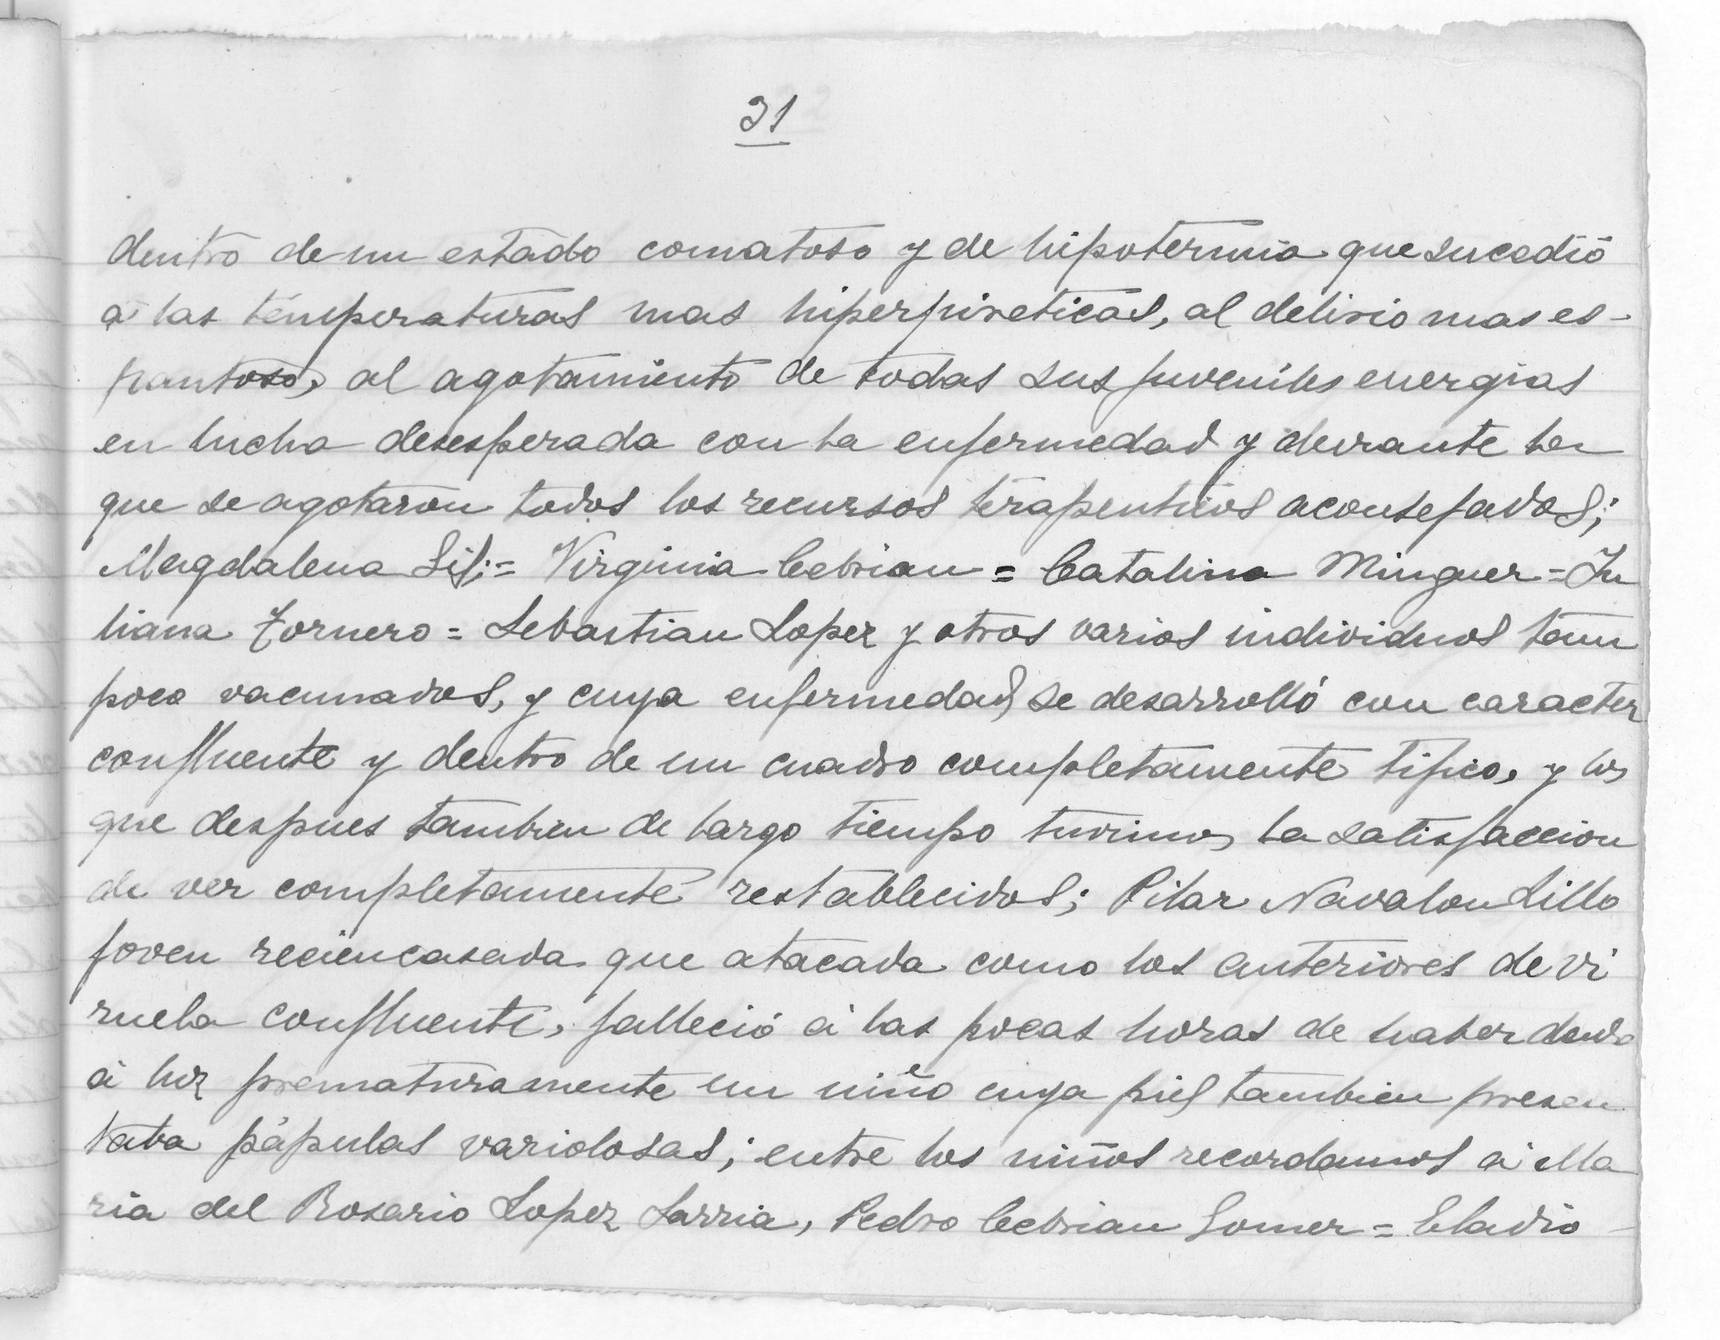 31
dentro de un estado comatoso y de hipotermia que sucedió
á las temperaturas mas hiperpireticas, al delirio mas es-
pantoso, al agotamiento de todas sus juveniles energias
en lucha desesperada con la enfermedad y durante la
que se agotaron todos los recursos terapeuticos aconsejados;
Magdalena Gil;= Virginia Cebrian = Catalina Minguer = Ju
liana Tornero = Sebastian Lopez y otros varios individuos tam
poco vacunados, y cuya enfermedad se desarrolló con caracter
confluente y dentro de un cuadro completamente tipico, y los
que despues tambien de largo tiempo tuvimos la satisfaccion
de ver completamente restablecidos; Pilar Navalon Lillo
joven reciencasada que atacada como los anteriores de vi
ruela confluente, falleció á las pocas horas de haber dado
á luz prematuramente un niño cuya piel tambien presen
taba pápulas variolosas; entre los niños recordamos á Ma
ria del Rosario Lopez Sarria, Pedro Cebrian Gomer = Eladio